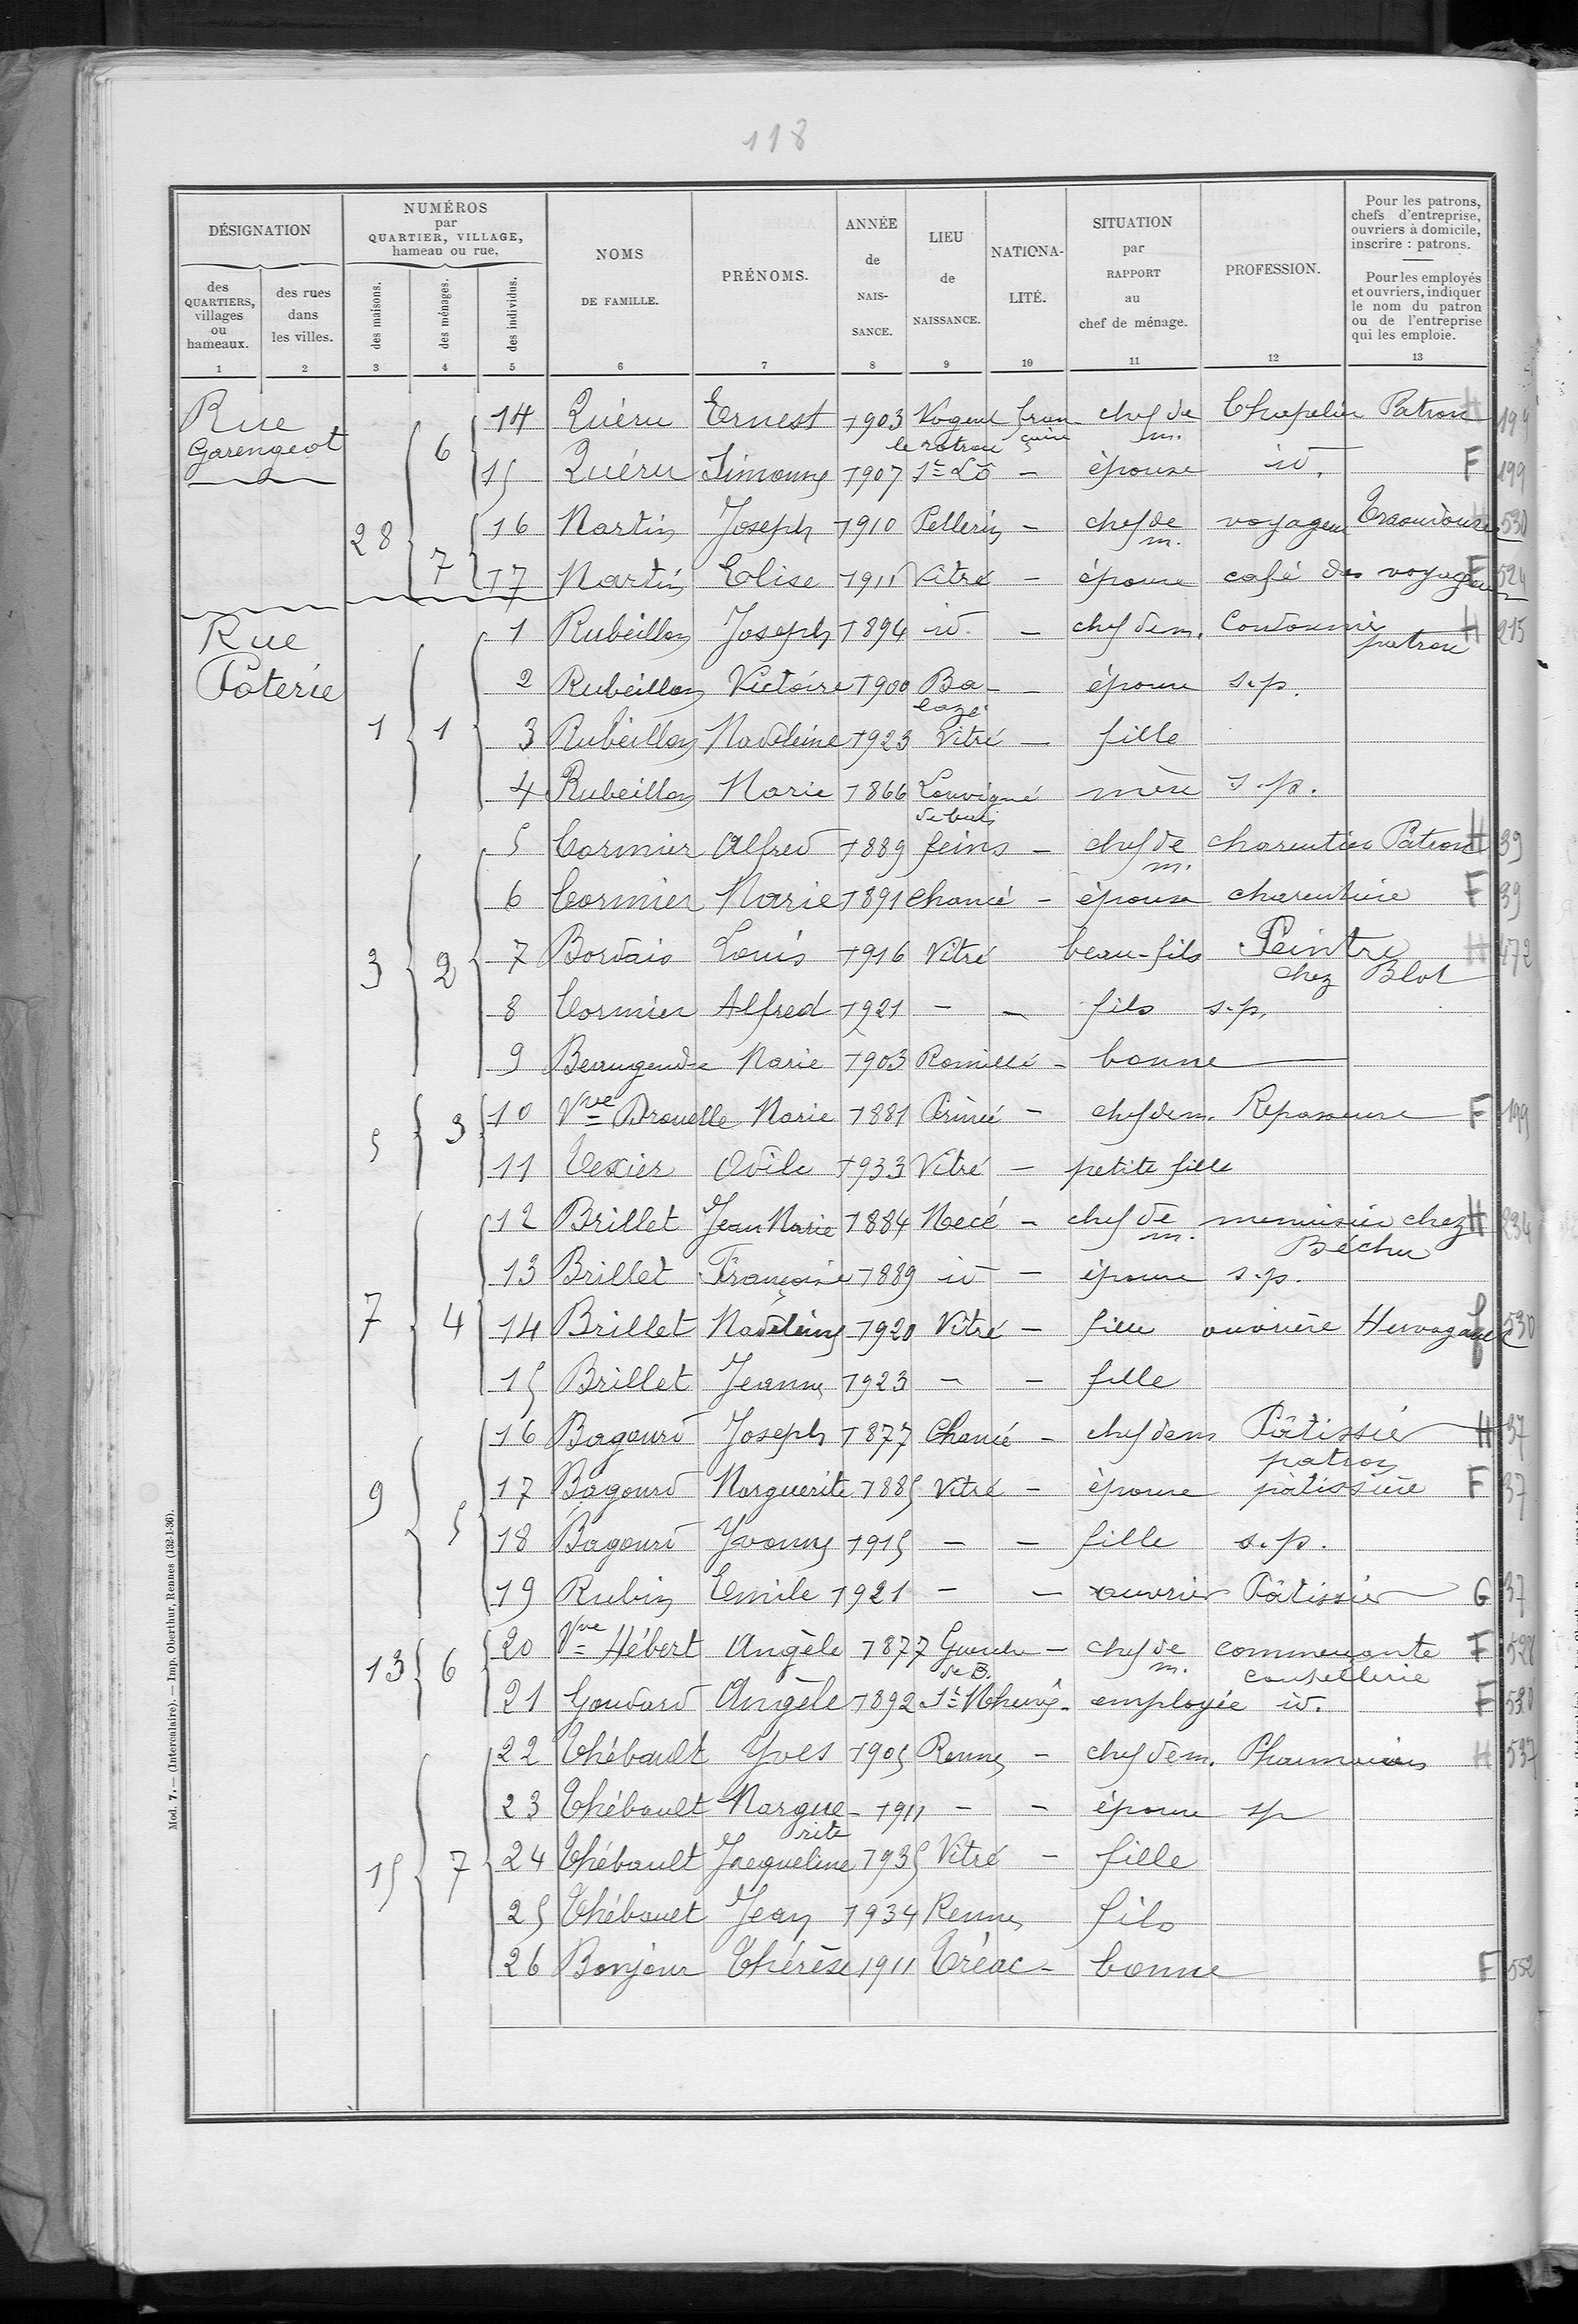 118
DÉSIGNATION
NUMÉROS
par
QUARTIER, VILLAGE,
hameau ou rue.
des
QUARTIERS,
villages
ou
hameaux.
des rues
dans
les villes.
des maisons.
des ménages.
des individus.
NOMS
DE FAMILLE.
PRÉNOMS.
ANNÉE
de
NAIS-
SANCE.
LIEU
de
NAISSANCE.
NATIONA-
LITÉ.
SITUATION
par
RAPPORT
au
chef de ménage.
PROFESSION.
Pour les patrons,
chefs d'entreprise,
ouvriers à domicile,
inscrire : patrons.
Pour les employés
et ouvriers, indiquer
le nom du patron
ou de l'entreprise
qui les emploie.
1 2 3 4 5 6 7 8 9 10 11 12 13
Rue
Garengeot
28 6 14 Quéru Ernest 1903 Nogent le rotrou française chef de m. Chapelier Patron H 199
15 Quéru Simonne 1907 St Lô - épouse id. F 199
7 16 Martin Joseph 1910 Pellerin - chef de m. voyageur 530
17 Martin Elise 1911 Vitré - épouse café des voyageurs F 524
Rue
Poterie
1 1 1 Rubeillon Joseph 1894 id. - chef de m. Cordonnier patron H 215
2 Rubeillon Victoire 1900 Balazé - épouse s.p.
3 Rubeillon Madeleine 1923 Vitré - fille
4 Rubeillon Marie 1866 Louvigné de bais mère s.p.
3 2 5 Cormier Alfred 1889 feins - chef de m. charcutier Patron H 39
6 Cormier Marie 1891 Chancé - épouse charcutière F 39
7 Bordais Louis 1916 Vitré beau-fils Peintre chez Blot H 472
8 Cormier Alfred 1921 - - fils s.p.
9 Beaugendre Marie 1903 Romillé - bonne
5 3 10 Vve Drouelle Marie 1881 Princé - chef de m. Repasseuse F 199
11 Texier Odile 1933 Vitré - petite fille
7 4 12 Brillet Jean Marie 1884 Mecé - chef de m. menuisier chez Béchu H 234
13 Brillet Françoise 1889 id - épouse s.p.
14 Brillet Madeleine 1920 Vitré - fille ouvrière Hervagault f 530
15 Brillet Jeanne 1923 - - fille
9 5 16 Bagourd Joseph 1877 Chancé - chef de m Pâtissier patron H 37
17 Bagourd Marguerite 1885 Vitré - épouse pâtissière F 37
18 Bagourd Yvonne 1915 - - fille s.p.
19 Rubin Emile 1921 - - ouvrier Pâtissier G 37
13 6 20 Vve Hébert Angèle 1877 Guerche de B. - chef de m. commerçante coutellerie F 528
21 Goudard Angèle 1892 St - employée id. F 530
15 7 22 Thébault Yves 1905 Rennes - chef de m. Pharmacien H 537
23 Thébault Marguerite 1911 - - épouse sp
24 Thébault Jacqueline 1935 Vitré - fille
25 Thébault Jean 1934 Rennes fils
26 Bonjour Thérèse 1911 Tréac - bonne F 552
Mod. 7. — (Intercalaire). — Imp. Oberthur, Rennes (132-1-36).